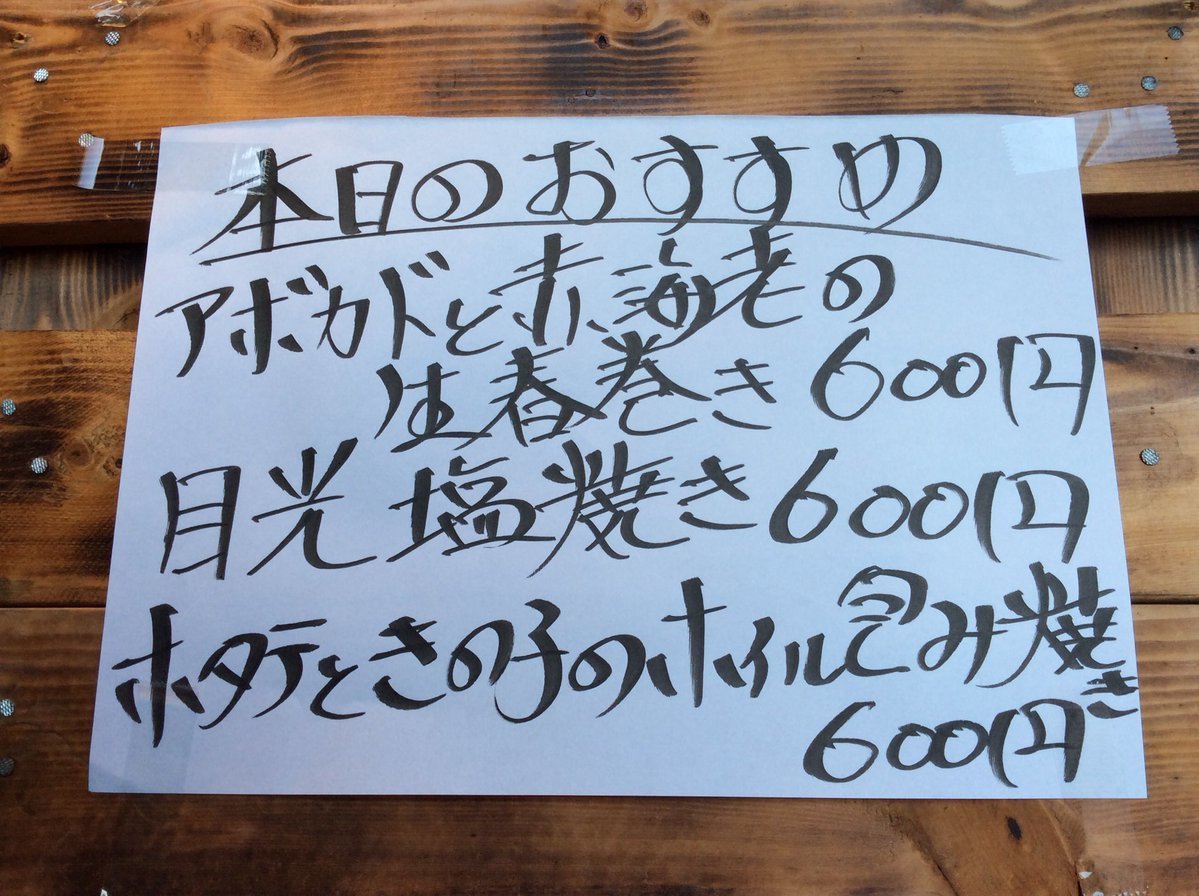 本日のおすすめ
アボカドと赤海老の
生春巻き 600円
目光 塩焼き 600円
ホタテときの子のホイル包み焼き
600円